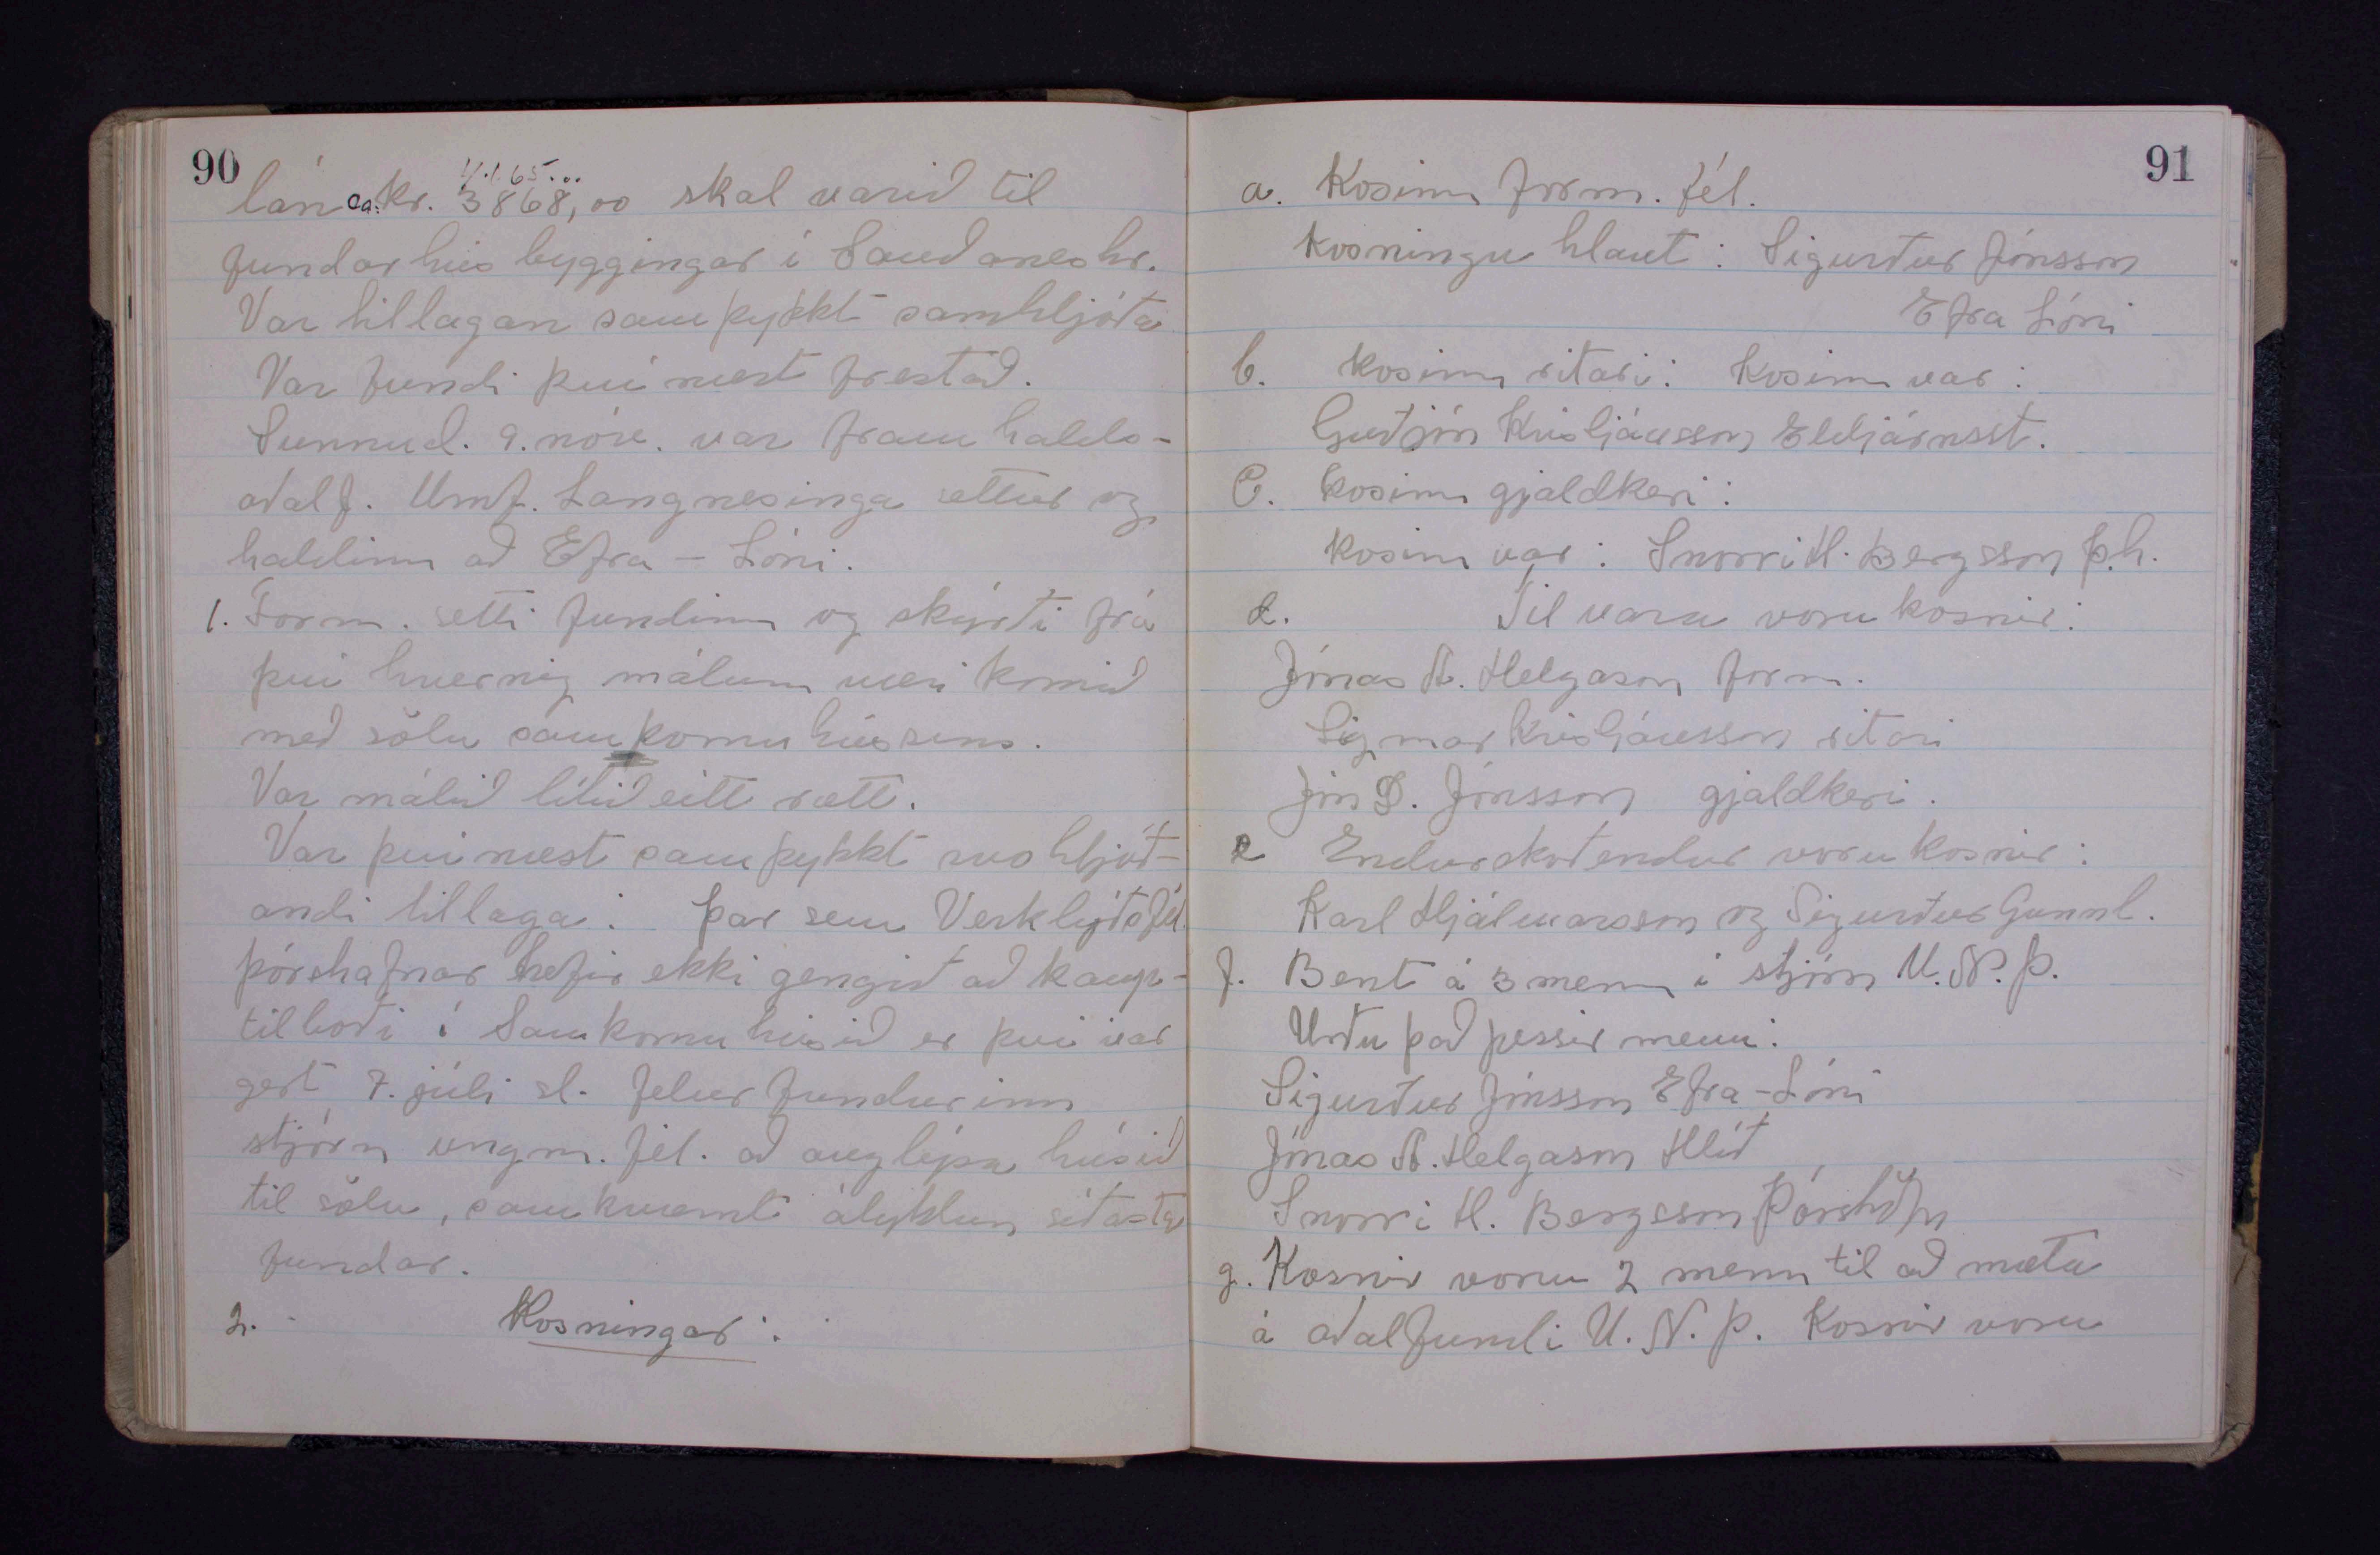 90
lán ca. kr. 3868,00 skal varið til
fundarhús byggingar í Sauðaneshr.
Var tillagan samþykkt samhljóða
Var fundi því næst frestað.
Sunnud. 9. nóv. var framhalds-
aðalf. Umf. Langnesinga settur og
haldinn að Efra-Lóni.
1. Form. setti fundinn og skýrði frá
því hvernig málum væri komið
með sölu samkomuhússins.
Var málið lítið eitt rætt.
Var því næst samþykkt svohljóð-
andi tillaga: Þar sem Verklýðsfél.
Þórshafnar hefir ekki gengið að kaup-
tilboði í Samkomuhúsið er því var
gert 7. júlí sl. felur fundurinn
stjórn ungm. fél. að auglýsa húsið
til sölu, samkvæmt ályktun síðasta
fundar.
2. Kosningar:
91
a. Kosinn form. fél.
Kosningu hlaut: Sigurður Jónsson
Efra Lóni
b. Kosinn ritari: Kosinn var:
Guðjón Kristjánsson Eldjárnsst.
C. Kosinn gjaldkeri:
Kosinn var: Snorri H. Bergsson Þ.h.
d. Til vara voru kosnir:
Jónas A. Helgason form.
Sigmar Kristjánsson ritari
Jón D. Jónsson gjaldkeri.
e Endurskoðendur voru kosnir:
Karl Hjálmarsson og Sigurður Gunnl.
f. Bent á 3 menn í stjórn U.N.Þ.
Urðu það þessir menn:
Sigurður Jónsson Efra-Lóni
Jónas A. Helgason Hlíð
Snorri H. Bergsson Þórshöfn
g. Kosnir voru 2 menn til að mæta
á aðalfundi U.N.Þ. Kosnir voru